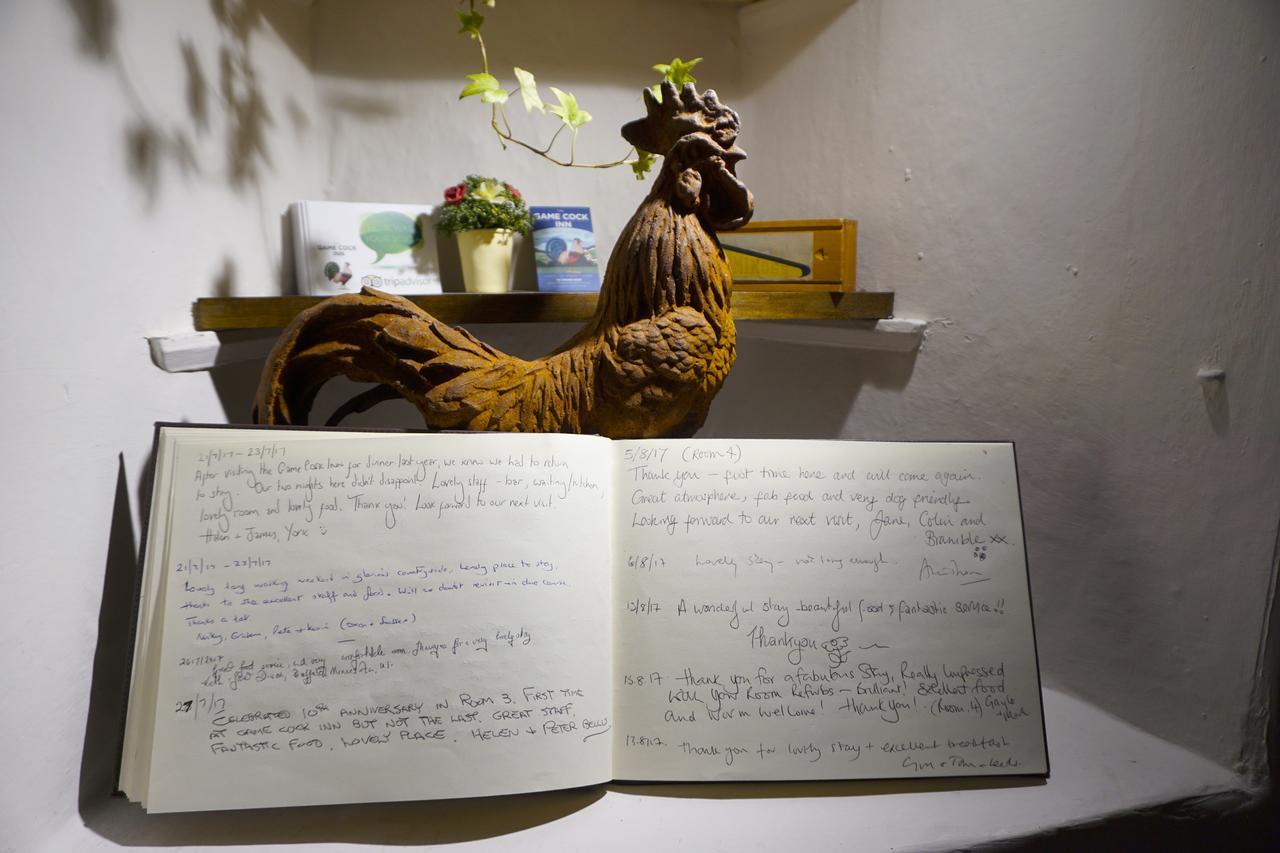 GAME COCK
INN
tripadvisor
GAME COCK
INN
21/7/17 – 23/7/17
After visiting the Game Cock Inn for dinner last year, we knew we had to return
to stay. Our two nights here didn't disappoint! Lovely staff – bar, waiting/kitchen,
lovely room and lovely food. Thank you! Look forward to our next visit.
Helen + James, York
21/7/17 – 23/7/17
Lovely long walking weekend in glorious countryside. Lovely place to stay,
thanks to the excellent staff and food. Will no doubt revisit in due course.
Thanks a lot.
26/7/2017 Great food service, and very comfortable room. Thank you for a very lovely stay
27/7/17
CELEBRATED 10TH ANNIVERSARY IN ROOM 3. FIRST TIME
AT GAME COCK INN BUT NOT THE LAST. GREAT STAFF,
FANTASTIC FOOD, LOVELY PLACE. HELEN + PETER
5/8/17 (Room 4)
Thank you – first time here and will come again.
Great atmosphere, fab food and very dog friendly.
Looking forward to our next visit, Jane, Colin and
Bramble xx.
6/8/17 Lovely stay – not long enough.
12/8/17 A wonderful stay beautiful food & fantastic service!!
Thankyou
13.8.17 Thank you for a fabulous Stay, Really Impressed
with your Room Refurbs – Brilliant! Excellent food
and warm welcome! Thankyou! (Room 4) Gayle
13.8.17. Thank you for lovely stay + excellent breakfast
+ Tom – Leeds.